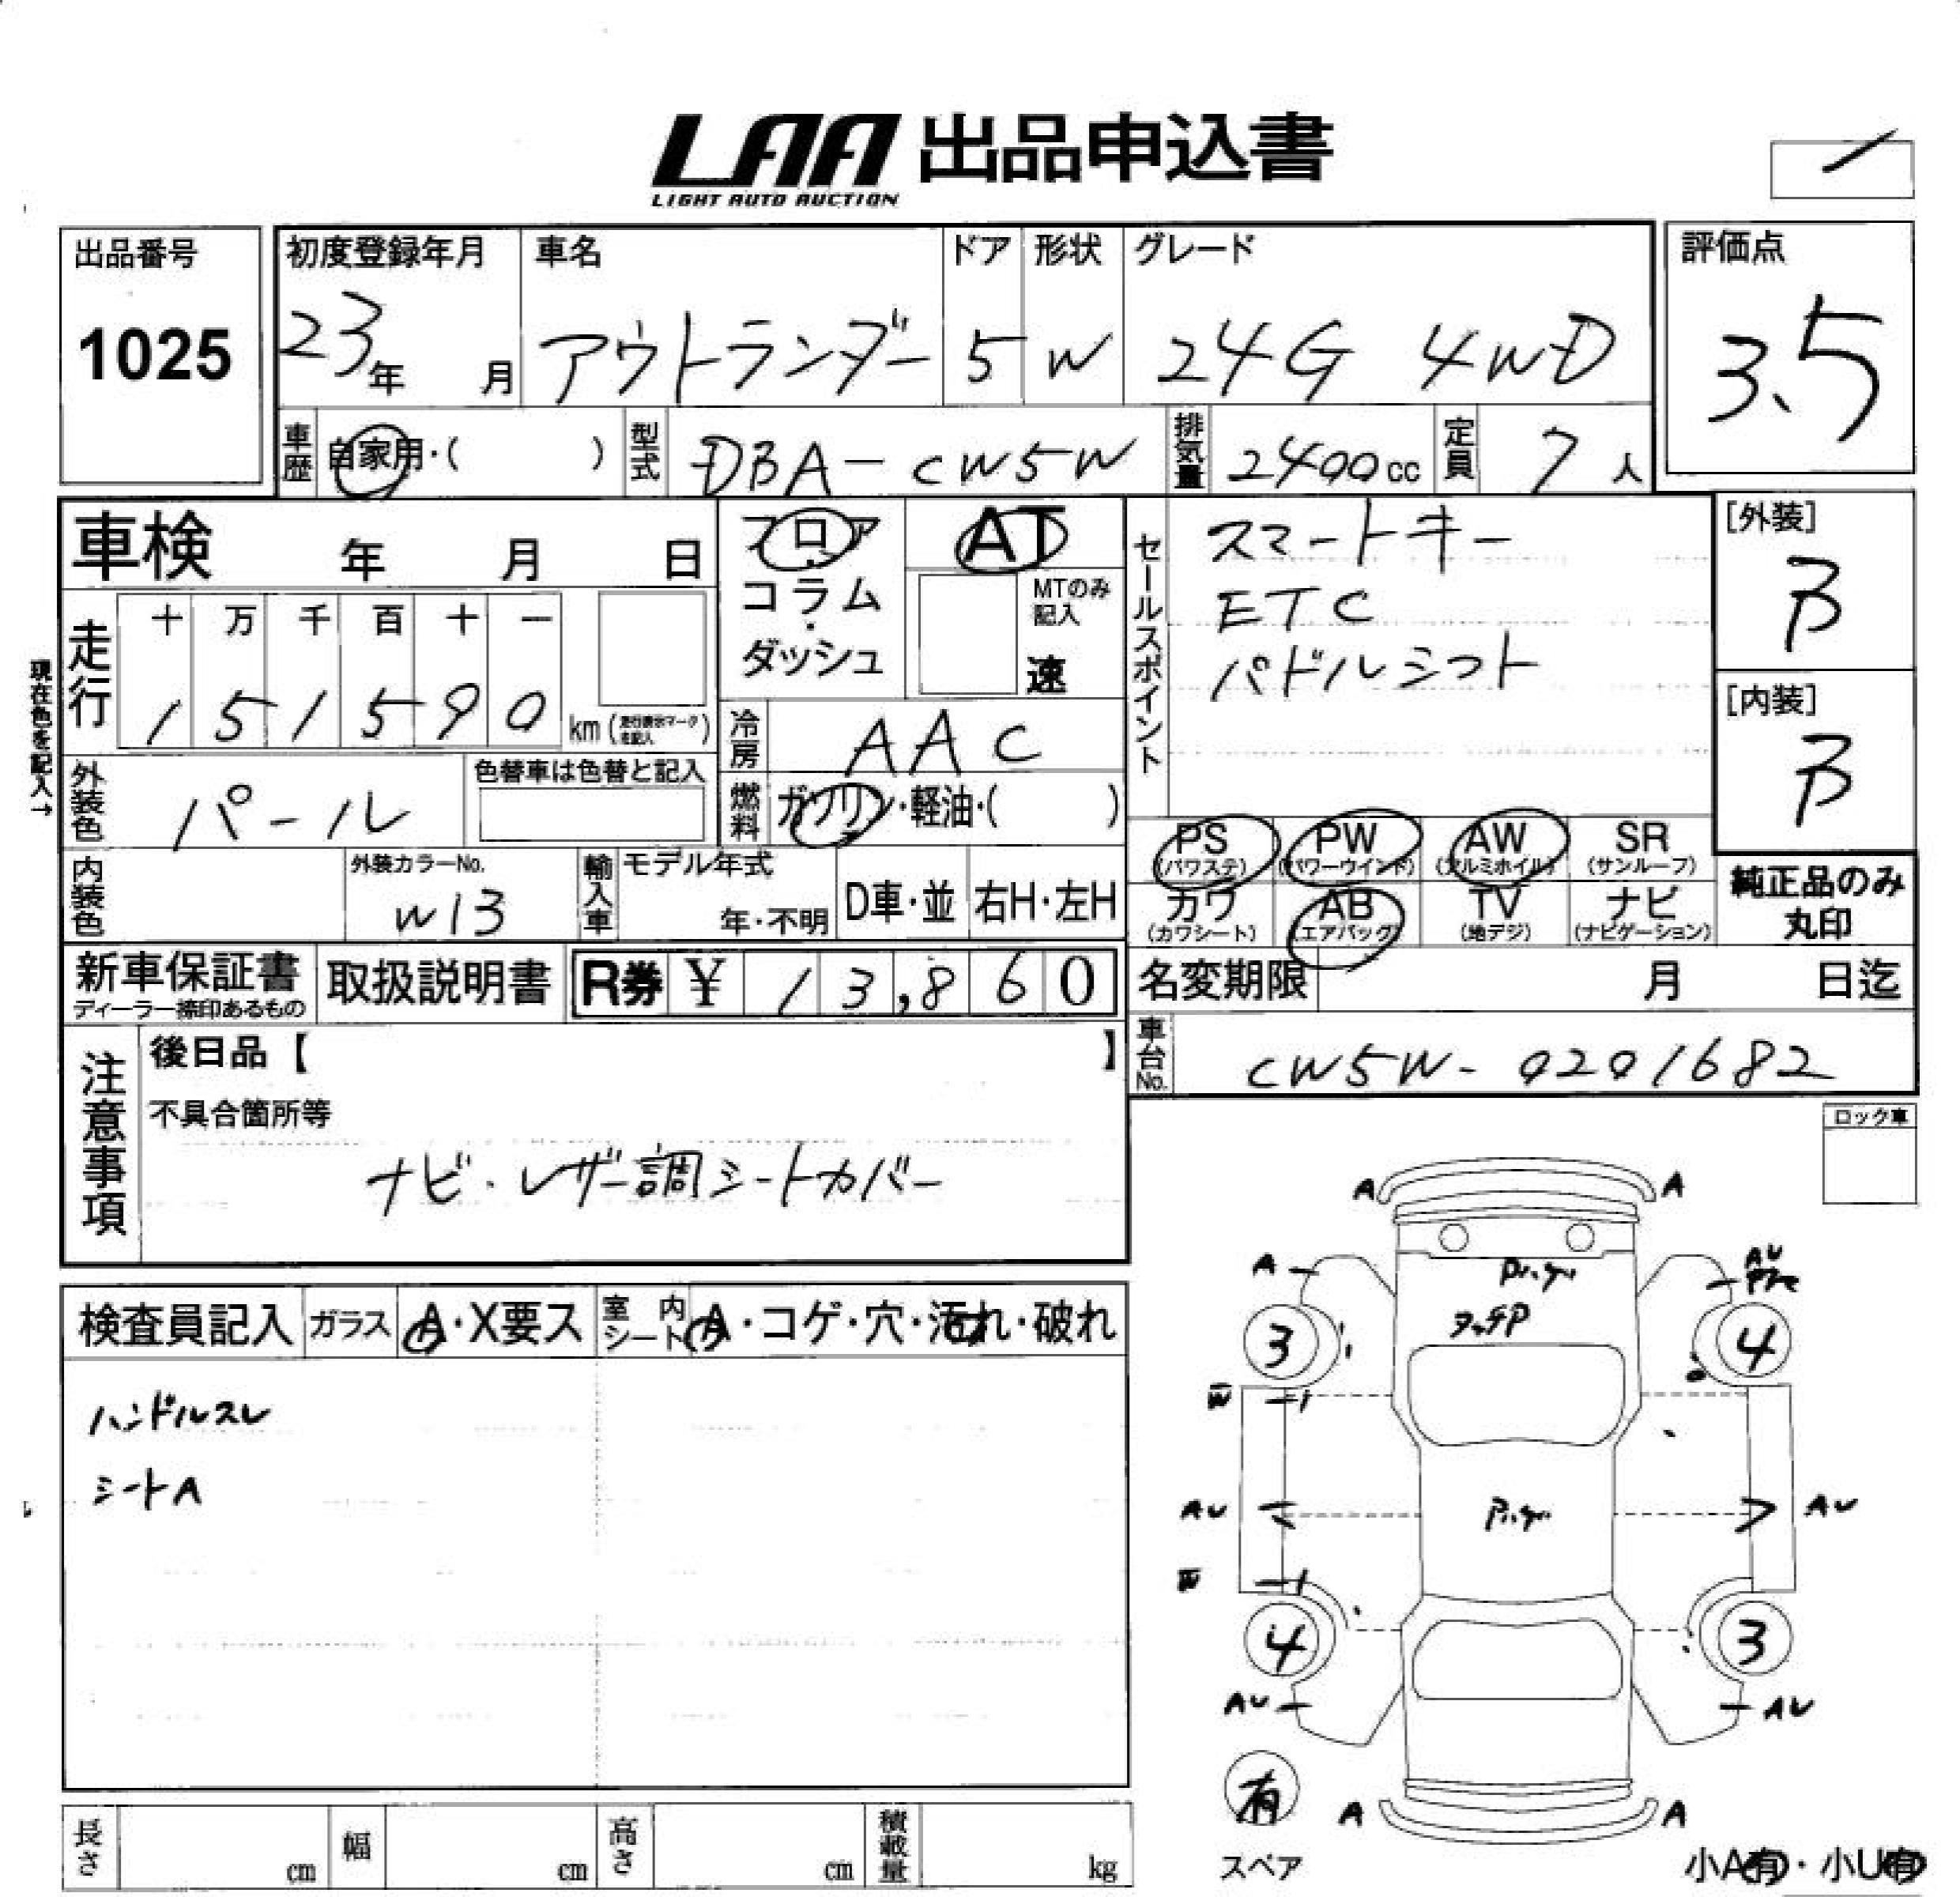 LAA 出品申込書
LIGHT AUTO AUCTION
出品番号
1025
初度登録年月
23年 月
車名
アウトランダー
ドア
5
形状
W
グレード
24G 4WD
評価点
3.5
車歴 自家用・( )
型式 DBA-CW5W
排気量 2400cc
定員 7人
車検 年 月 日
フロア・コラム・ダッシュ
AT
MTのみ記入
速
セールスポイント
スマートキー
ETC
パドルシフト
[外装]
B
[内装]
B
現在色を記入→
走行
十 万 千 百 十 一
1 5 1 5 9 0 km (走行表示マークを記入)
冷房 AAC
外装色 パール
色替車は色替と記入
燃料 ガソリン・軽油・( )
PS (パワステ)
PW (パワーウインド)
AW (アルミホイル)
SR (サンルーフ)
カワ (カワシート)
AB (エアバック)
TV (地デジ)
ナビ (ナビゲーション)
純正品のみ
丸印
内装色
外装カラーNo.
W13
輸入車
モデル年式
年・不明
D車・並
右H・左H
新車保証書
ディーラー捺印あるもの
取扱説明書
R券 ¥ 13,860
名変期限 月 日迄
車台No. CW5W-0201682
注意事項
後日品【 】
不具合箇所等
ナビ・レザー調シートカバー
ロック車
検査員記入
ガラス A・X要ス
室内シート A・コゲ・穴・汚れ・破れ
ハンドルスレ
シートA
A A
A AU
タッチP
3 4
W
AU AU
W
4 3
AU AU
有
スペア
A A
小A有・小U有
長さ cm
幅 cm
高さ cm
積載量 kg